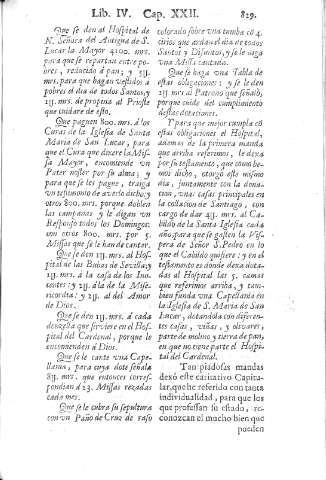 Lib. IV. Cap. XXII. 829.
Que se den al Hospital de
N. Señora del Antigua de S.
Lucar la Mayor 4100. mrs.
para que se repartan entre pobres
, reducido a pan; y 5U.
mrs. para que hagan vestidos a
pobres el dia de todos Santos, y
1U. mrs. de propina al Prioste
que cuidare de esto.
Que paguen 800. mrs. á los
Curas de la Iglesia de Santa
Maria de San Lucar, para
que el Cura que dixere la Missa
Mayor, encomiende un
Pater noster por su alma; y
para que se les pague, traiga
un testimonio de averlo dicho; y
otros 800. mrs. porque doblen
las campanas y le digan un
Responso todos los Domingos:
con otros 800. mrs. por 5.
Missas que se le han de cantar.
Que se den 1U. mrs. al Hospital
de las Bubas de Sevilla; 1U.
mrs. á la casa de los Inocentes;
y 2U. á la de la Misericordia;
y 2U. al del Amor
de Dios.
Que se den 1U. mrs. á cada
donzella que sirviere en el Hospital
del Cardenal, porque le
encomienden á Dios.
Que se le cante una Capellania,
para cuya dote señala
8U. mrs. que entonces correspondian
á 23. Missas rezadas
cada mes.
Que se cubra su sepultura
con un Paño de Cruz de raso
colorado sobre una tumba có 4.
cirios que ardan el dia de todos
Santos y Difuntos, y se le diga
una Missa cantada.
Que se haga una Tabla de
estas obligaciones: y se le den
1U. mrs al Patrono que señaló,
porque cuide del cumplimiento
destas dotaciones.
Y para que mejor cumpla có
estas obligaciones el Hospital,
ademas de la primera manda
que arriba referimos, le dexa
por su testamento, que como hemos
dicho, otorgó este mismo
dia, juntamente con la donacion,
unas casas principales en
la collacion de Santiago, con
cargo de dar 4U. mrs. al Cabildo
de la Santa Iglesia cada
año; para que se gasten la Vispera
de Señor S. Pedro en lo
que el Cabildo quisiere: y en el
testamento es donde dexa dotadas
al Hospital las 5. camas
que referimos arriba, y tambien
funda una Capellania en
la Iglesia de S. Maria de San
Lucar, dotandola con diferentes
casas, viñas, y olivares,
parte de molino y tierra de pan,
en que no tiene parte el Hospital
del Cardenal.
Tan piadosas mandas
dexó este caritativo Capitular,
que he referido con tanta
individualidad, para que los
que professan su estado, reconozcan
el mucho bien que
pueden